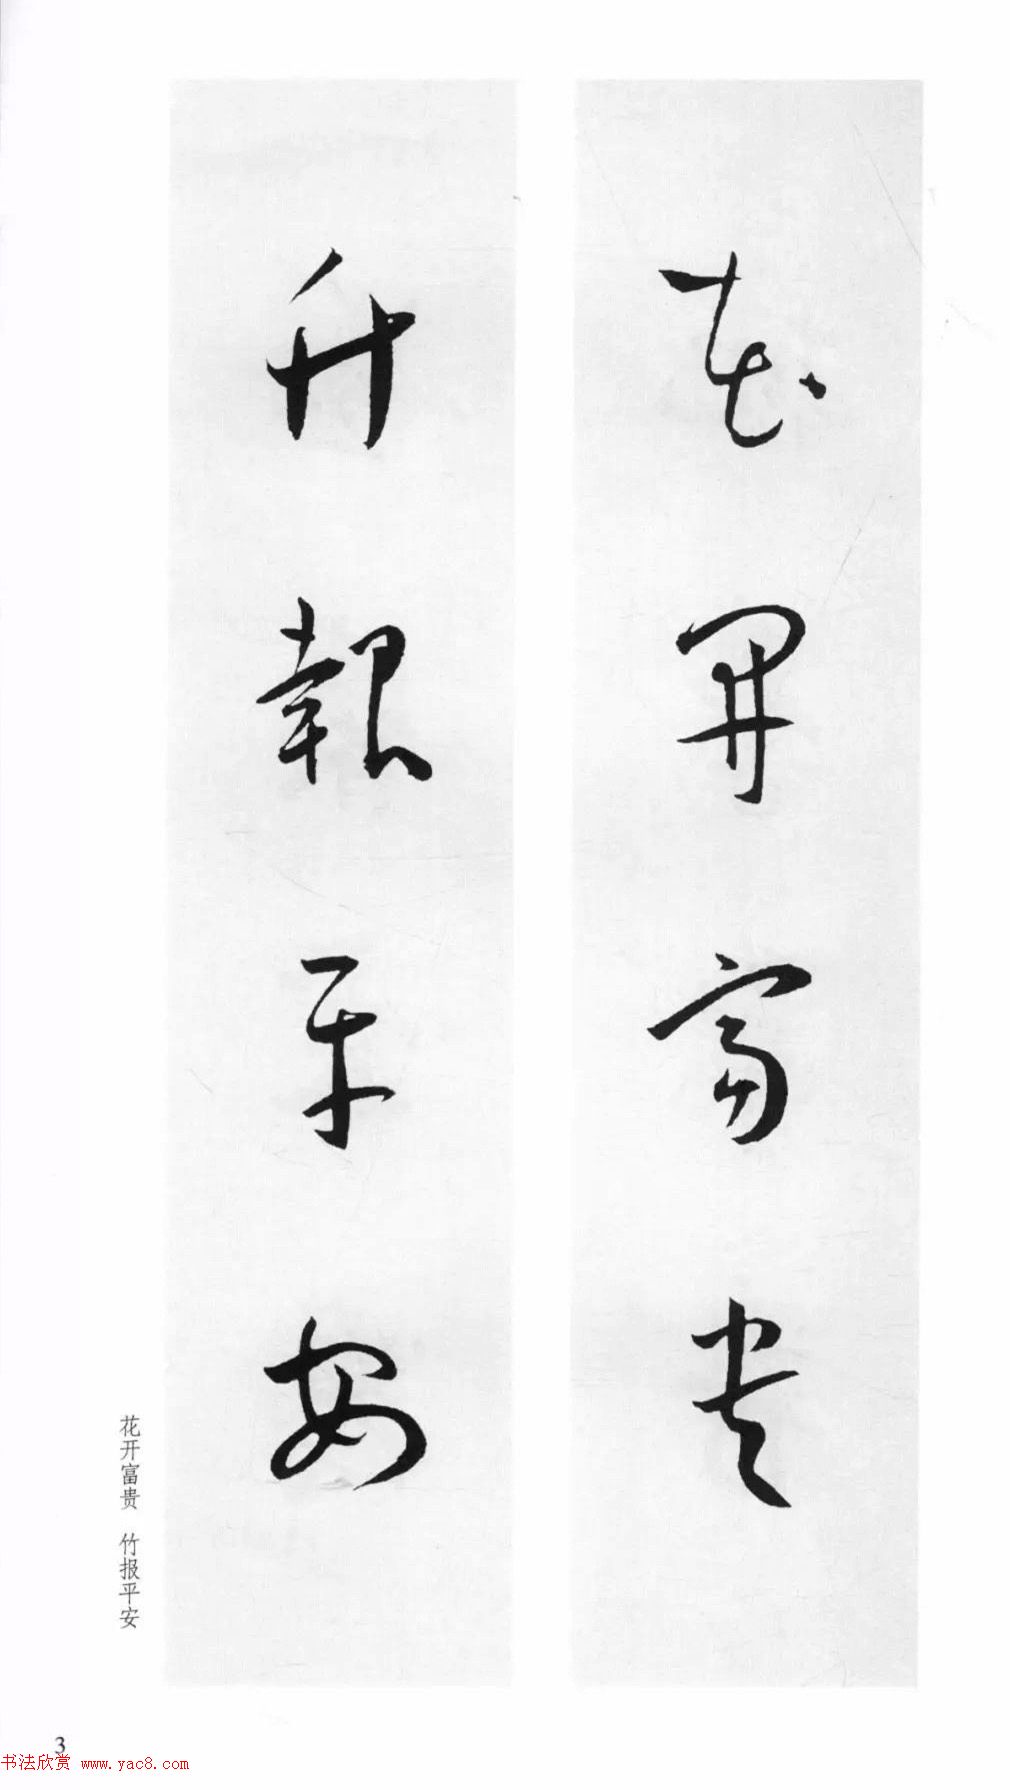 花開富貴
竹報平安
花开富贵 竹报平安
3
书法欣赏 www.yac8.com